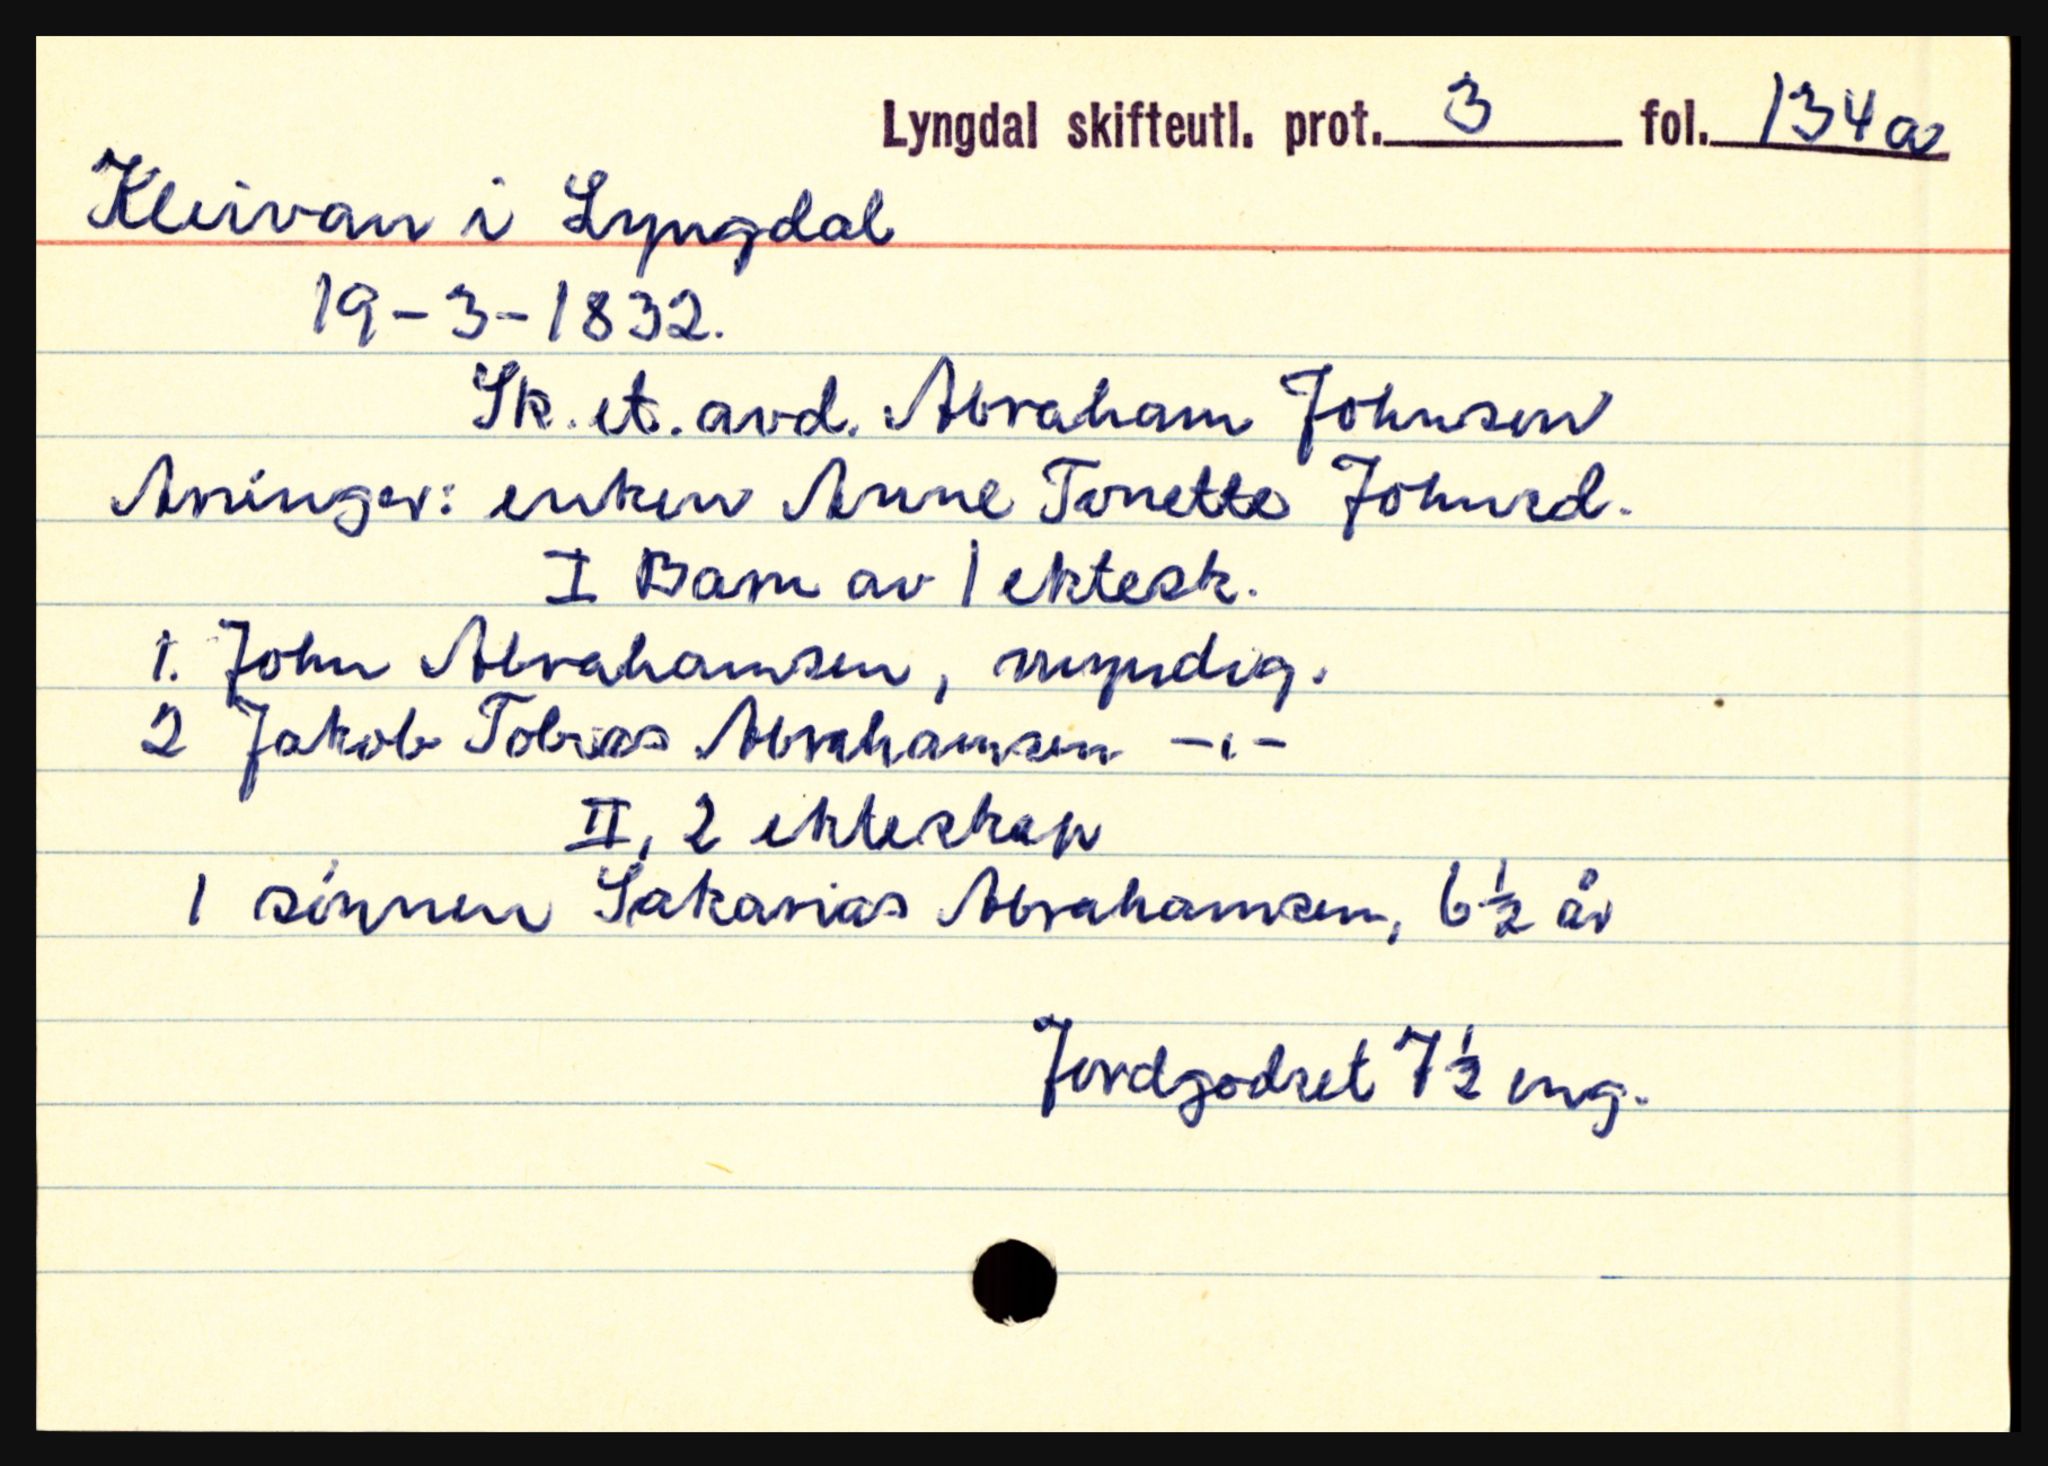 Lyngdal skifteutl. prot. 3 fol. 134a
Kleivan i Lyngdal
19-3-1832.
Sk. et. avd. Abraham Johnsen
Arvinger: enken Anne Tonette Johnsd.
I Barn av 1 ektesk.
1. John Abrahamsen, myndig.
2 Jakob Tobias Abrahamsen -"-
II, 2 ekteskap
1 sønnen Sakarias Abrahamsen, 6 1/2 år
Jordgodset 7 1/2 eng.